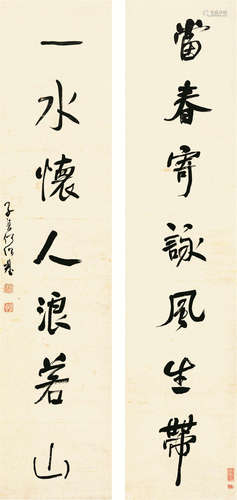 當春寄詠風生帶
一水懷人浪若山